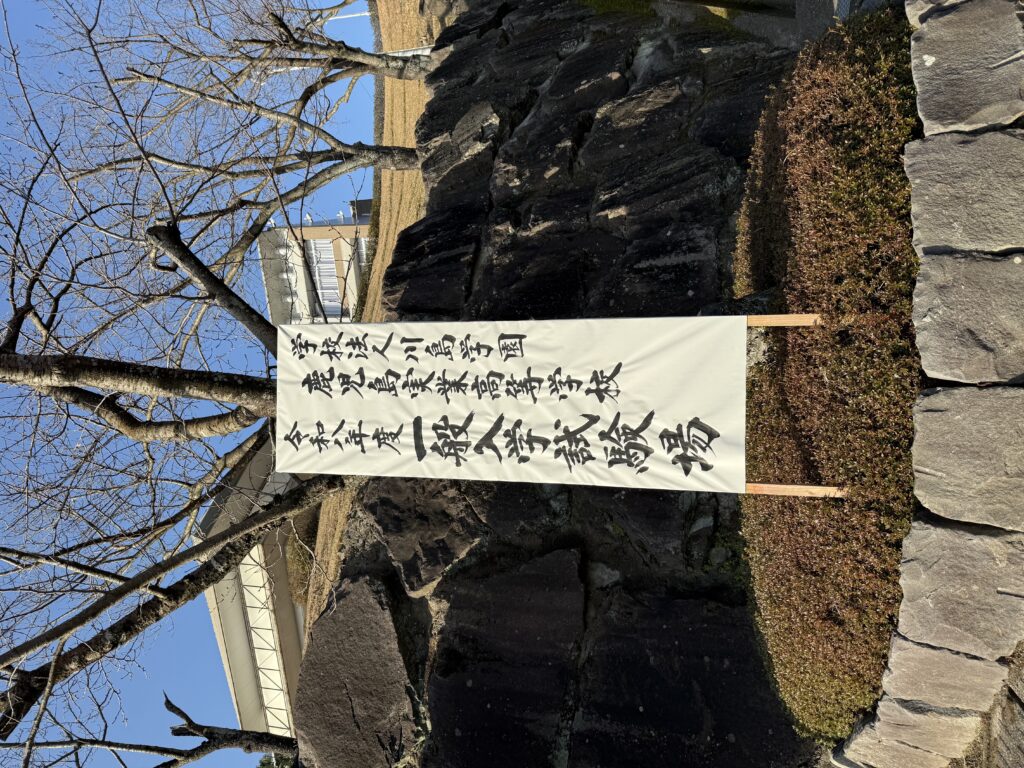 学校法人川島学園
鹿児島実業高等学校
令和八年度一般入学試験場